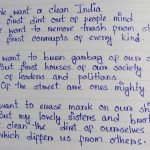 We want a clean India
first dirt out of people mind
We want to remove trash from st
first corrupts of every kind.
want to brush garbag of our s
But first houses of our society
of leaders and politians
Of the street are ones mighty
want to erase mark on our sh
But my lovely sisters and brot
clean the dirt of ourselves
which differs us from others.